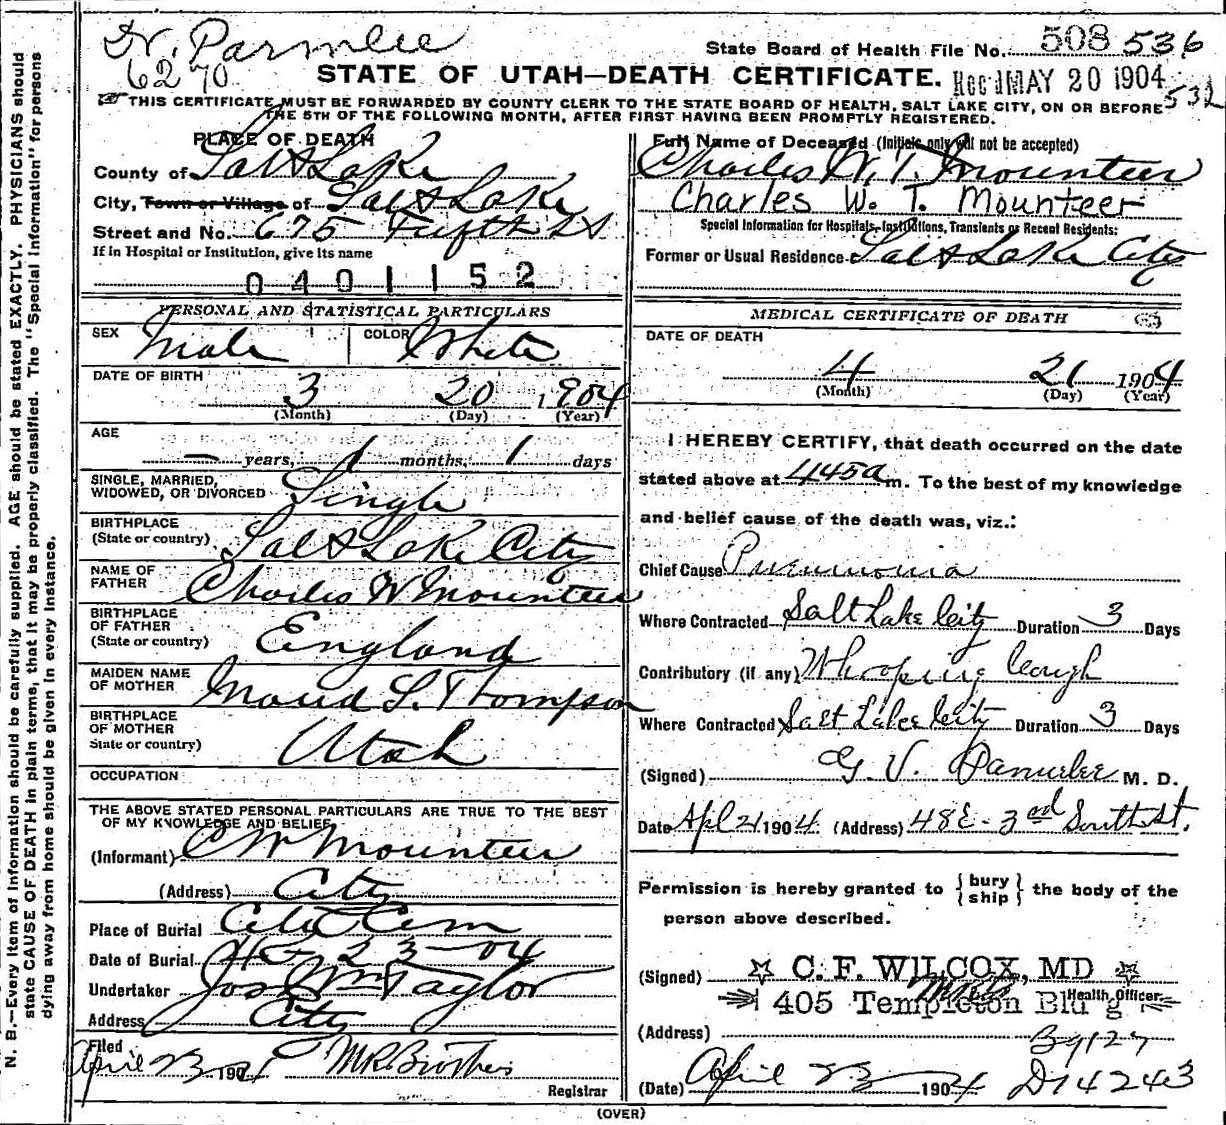 Dr. Parmlee
6270
State Board of Health File No. 508 536
STATE OF UTAH—DEATH CERTIFICATE.
Rec'd MAY 20 1904
532
THIS CERTIFICATE MUST BE FORWARDED BY COUNTY CLERK TO THE STATE BOARD OF HEALTH, SALT LAKE CITY, ON OR BEFORE
THE 5TH OF THE FOLLOWING MONTH, AFTER FIRST HAVING BEEN PROMPTLY REGISTERED.
N. B.—Every item of information should be carefully supplied. AGE should be stated EXACTLY. PHYSICIANS should
state CAUSE OF DEATH in plain terms, that it may be properly classified. The "Special Information" for persons
dying away from home should be given in every instance.
PLACE OF DEATH
County of Salt Lake
City, Town or Village of Salt Lake
Street and No. 675 Fifth St
If in Hospital or Institution, give its name
0401152
PERSONAL AND STATISTICAL PARTICULARS
SEX Male COLOR White
DATE OF BIRTH
3 20 1904
(Month) (Day) (Year)
AGE
— years, 1 months, 1 days
SINGLE, MARRIED,
WIDOWED, OR DIVORCED Single
BIRTHPLACE
(State or country) Salt Lake City
NAME OF
FATHER Charles W Mounteer
BIRTHPLACE
OF FATHER
(State or country) England
MAIDEN NAME
OF MOTHER Maud S. Thompson
BIRTHPLACE
OF MOTHER
State or country) Utah
OCCUPATION
THE ABOVE STATED PERSONAL PARTICULARS ARE TRUE TO THE BEST
OF MY KNOWLEDGE AND BELIEF
(Informant) C W Mounteer
(Address) City
Place of Burial City Cem
Date of Burial 4 23—04
Undertaker Jos Wm Taylor
Address City
Filed
April 23 1904 M R Brothers
Registrar
Full Name of Deceased (Initials only will not be accepted)
Charles W. T. Mounteer
Charles W. T. Mounteer
Special Information for Hospitals, Institutions, Transients or Recent Residents:
Former or Usual Residence Salt Lake City
MEDICAL CERTIFICATE OF DEATH
DATE OF DEATH
4 21 1904
(Month) (Day) (Year)
I HEREBY CERTIFY, that death occurred on the date
stated above at 445a m. To the best of my knowledge
and belief cause of the death was, viz.:
Chief Cause Pneumonia
Where Contracted Salt Lake City Duration 3 Days
Contributory (if any) Whooping Cough
Where Contracted Salt Lake City Duration 3 Days
(Signed) G. V. Parmelee M. D.
Date Apl 21 1904. (Address) 48 E - 3rd South St.
Permission is hereby granted to {bury
ship} the body of the
person above described.
(Signed) C. F. WILCOX, MD
405 Templeton Bld'g Health Officer.
(Address)
B9127
(Date) April 23 1904 D14243
(OVER)